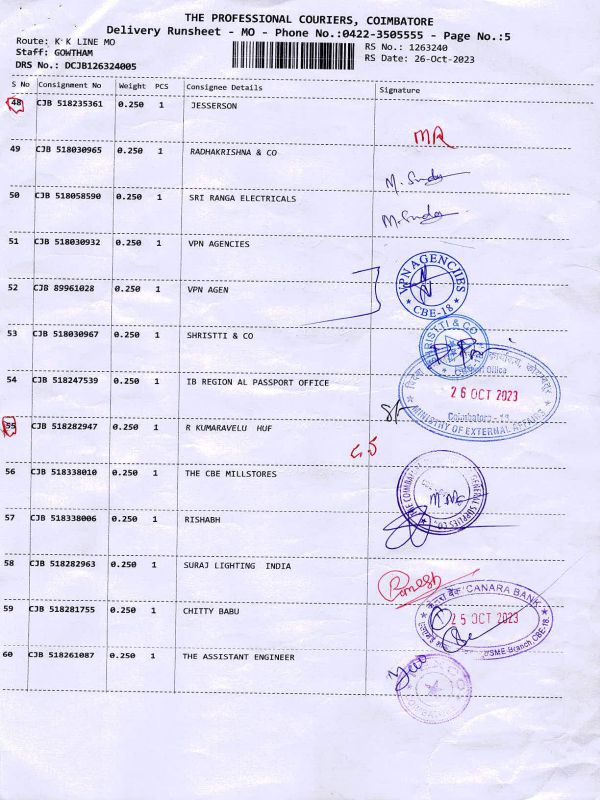 THE PROFESSIONAL COURIERS, COIMBATORE
Delivery Runsheet - MO - Phone No.:0422-3505555 - Page No.:5
Route: K K LINE MO
RS No.: 1263240
Staff: GOWTHAM
RS Date: 26-Oct-2023
DRS No.: DCJB126324005
S No Consignment No Weight PCS Consignee Details Signature
48 CJB 518235361 0.250 1 JESSERSON
MR
49 CJB 518030965 0.250 1 RADHAKRISHNA & CO
50 CJB 518058590 0.250 1 SRI RANGA ELECTRICALS
51 CJB 518030932 0.250 1 VPN AGENCIES
VPN AGENCIES
CBE-18
52 CJB 89961028 0.250 1 VPN AGEN
53 CJB 518030967 0.250 1 SHRISTTI & CO
SHRISTTI & CO
54 CJB 518247539 0.250 1 IB REGION AL PASSPORT OFFICE
Passport Office
26 OCT 2023
Coimbatore - 18
MINISTRY OF EXTERNAL AFFAIRS
55 CJB 518282947 0.250 1 R KUMARAVELU HUF
56 CJB 518338010 0.250 1 THE CBE MILLSTORES
57 CJB 518338006 0.250 1 RISHABH
58 CJB 518282963 0.250 1 SURAJ LIGHTING INDIA
Ramesh
केनरा बैंक CANARA BANK
59 CJB 518281755 0.250 1 CHITTY BABU
25 OCT 2023
SME Branch, CBE-18.
60 CJB 518261087 0.250 1 THE ASSISTANT ENGINEER